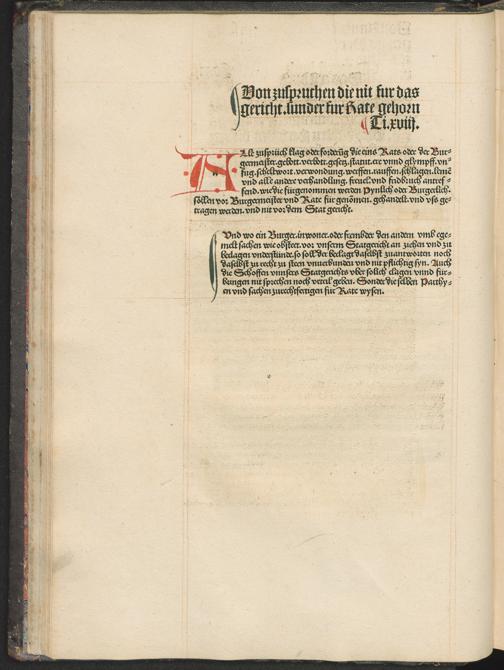 Von zuspruchen die nit fur das
gericht. sunder fur Rate gehorn
Ti. xviij.
Alle zuspruch klag oder fordrug die eins Rats oder der Bur-
germeister. gebott. verbott. gesetz. statut. ere vnnd glympff. vn-
fug. scheltwort. verwondung. werffen. rauffen. schlagen. lemē
vnd alle andere verhandlung. freuel. vnd fridbruch antref-
fend. wie die fürgenommen werden Pynlich oder Burgerlich.
söllen vor Burgermeister vnd Rate für genōmen. gehandelt. vnd vß ge-
tragen werden. vnd nit vor dem Stat gericht.
Vnd wo ein Burger. inwoner. oder frembder den andern vmb ege-
melt sachen wie obsteet. vor vnserm Statgericht an ziehen vnd zu
beclagen vnderstünde. so soll der beclagt daselbst zuantworten noch
daselbst zu recht zu steen vnuerbunden vnd nit pflichtig syn. Auch
die Schöffen vnnsers Statgerichts vber solich clagen vnnd für-
bungen nit sprechen noch vrteil geben. Sonder die selben Parthy-
en vnd sachen zurechtfertigen für Rate wysen.